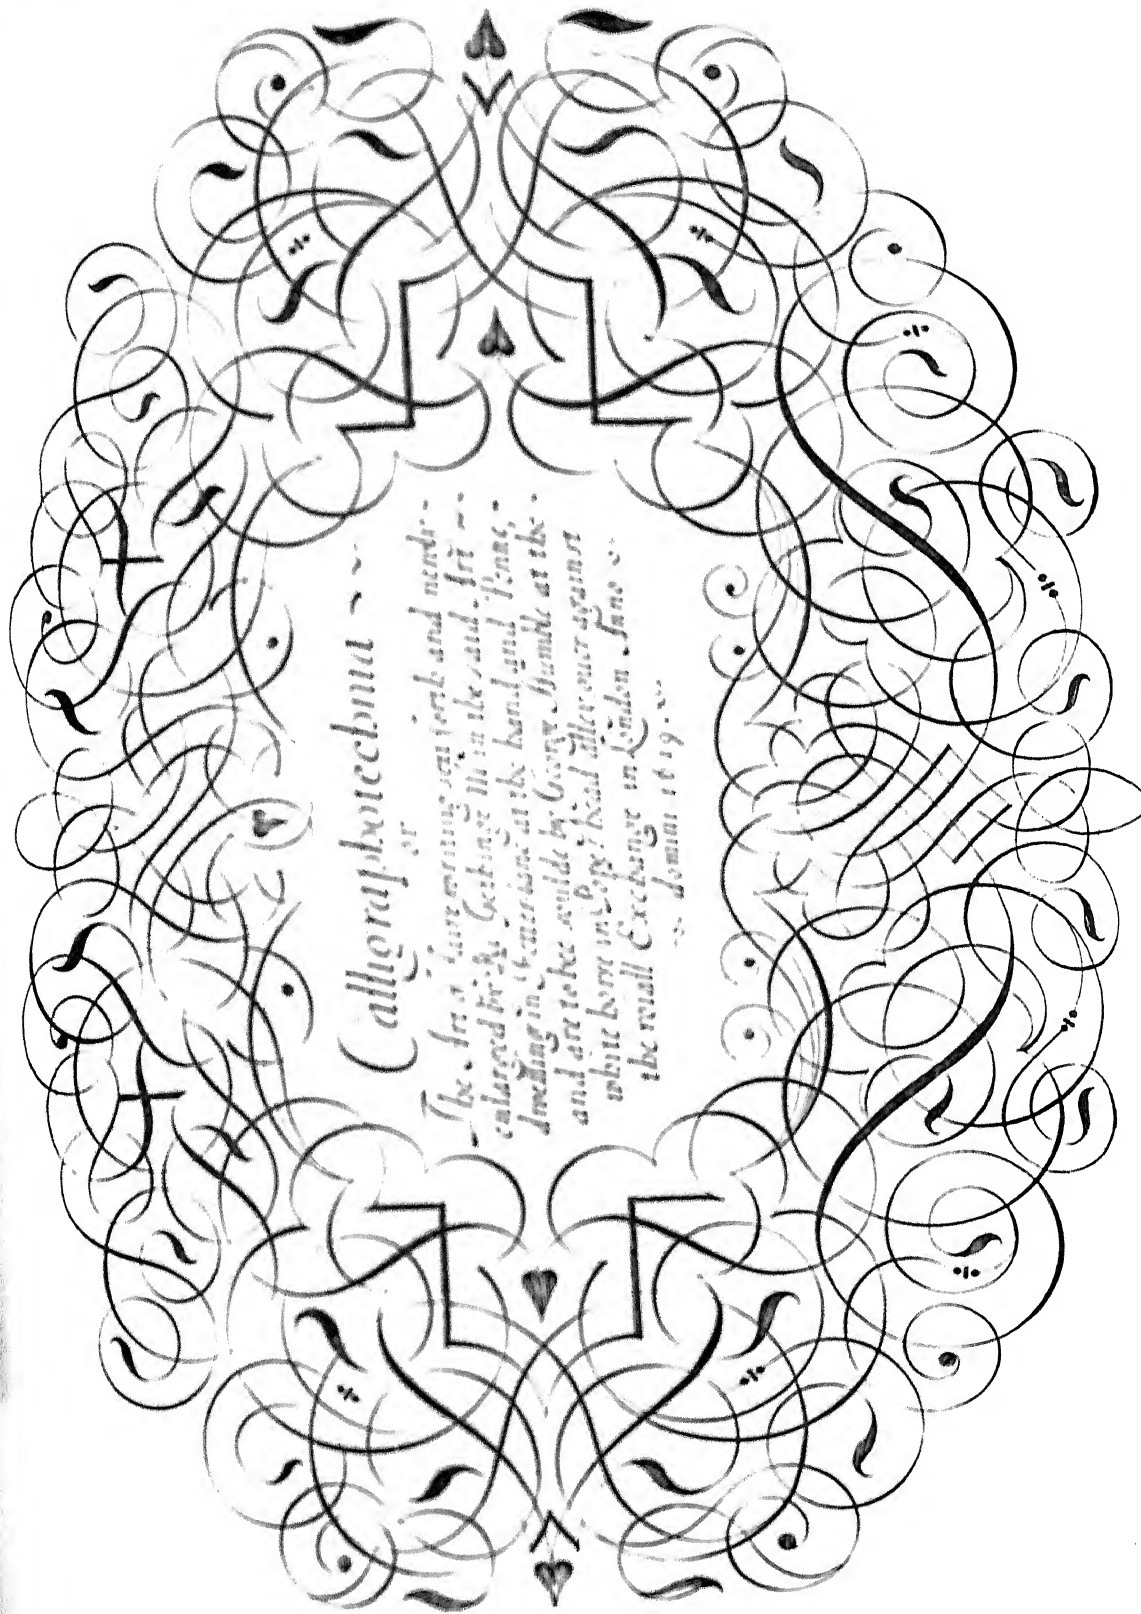 Calligraphotechnia
or
The Art of faire writing sett forth and newly
enlarged by Ri: Gethinge Mr. in the said Art
dwelling in
at the hand and Penne,
and are to bee soulde by George Humble at the
white horse in Popes head alley over against
the roiall Exchange in London Anno
domini 1619